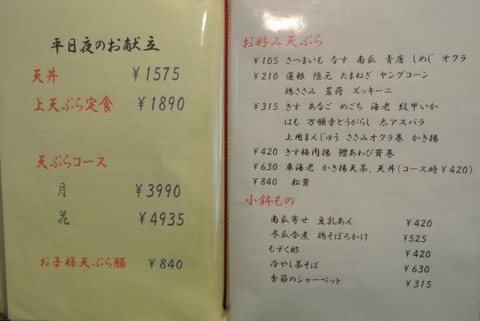 平日夜のお献立
天丼 ¥1575
上天ぷら定食 ¥1890
天ぷらコース
月 ¥3990
花 ¥4935
お子様天ぷら膳 ¥840
お好み天ぷら
¥105 さつまいも なす 南瓜 青唐 しめじ オクラ
¥210 蓮根 隠元 たまねぎ ヤングコーン
鶏ささみ 茗荷 ズッキーニ
¥315 きす あなご めごち 海老 紋甲いか
はも 万願寺とうがらし 太アスパラ
上用まんじゅう ささみオクラ巻 かき揚
¥420 きす梅肉揚 鱧あわび茸巻
¥630 車海老 かき揚天茶、天丼(コース時¥420)
¥840 松茸
小鉢もの
南瓜寄せ 豆乳あん ¥420
冬瓜含煮 鶏そぼろかけ ¥525
もずく酢 ¥420
冷やし茶そば ¥630
季節のシャーベット ¥315